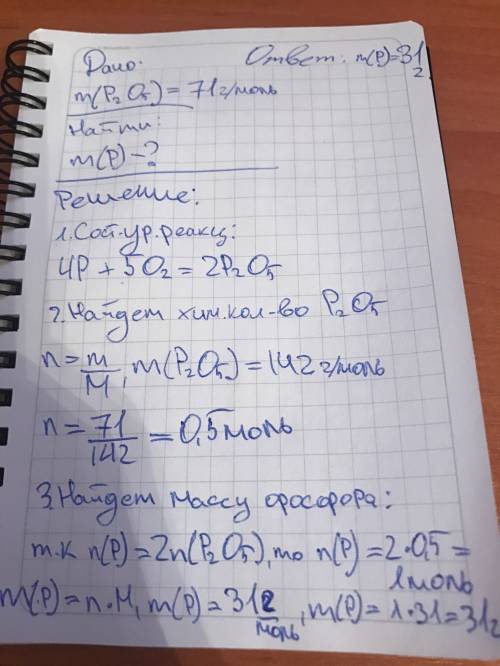 Дано:
Ответ: m(P)=31г
m(P₂O₅) = 71 г/моль
Найти:
m(P) - ?
Решение:
1. Сост. ур. реакц:
4P + 5O₂ = 2P₂O₅
2. Найдет хим. кол-во P₂O₅
n = m/M, m(P₂O₅) = 142 г/моль
n = 71/142 = 0,5 моль
3. Найдет массу фосфора:
т.к n(P) = 2n(P₂O₅), то n(P) = 2·0,5 = 1моль
m(P) = n·M, m(P) = 31 г/моль, m(P) = 1·31 = 31г